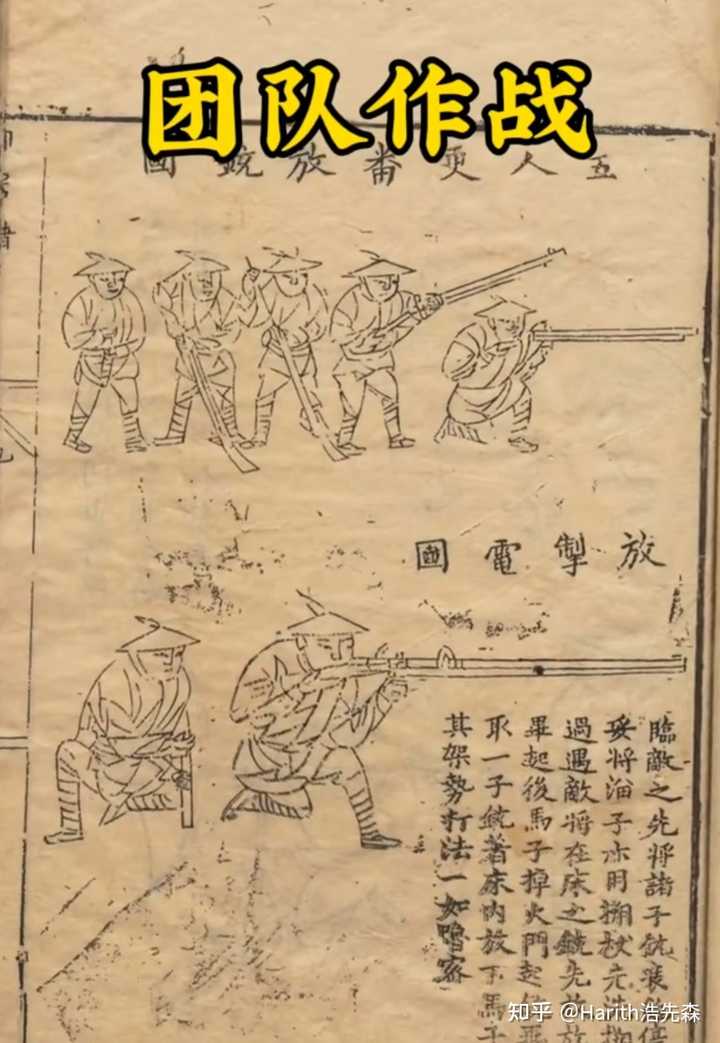 团队作战
五人更番放銃圖
放掣電圖
臨敵之先將諸子銃裝停
妥將油子亦用搠杖
過遇敵將在床之銃先放
畢起後馬子火門起
取一子銃著床內放下馬子
其架勢打法一如嚕密
知乎 @Harith浩先森